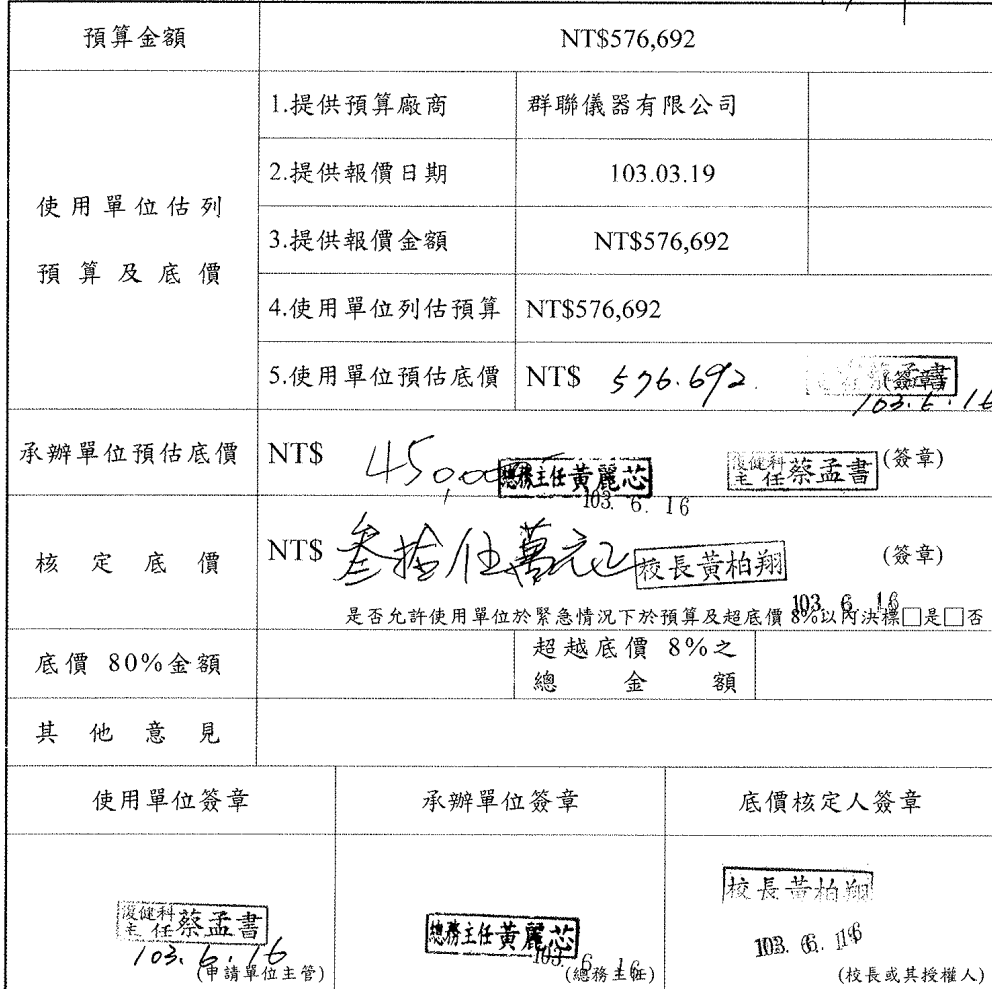 預算金額 NT$576,692
使用單位估列
預算及底價
1.提供預算廠商 群聯儀器有限公司
2.提供報價日期 103.03.19
3.提供報價金額 NT$576,692
4.使用單位列估預算 NT$576,692
5.使用單位預估底價 NT$ 576.692. 蔡孟書 (簽章)
103.6.16
承辦單位預估底價 NT$ 450,000 總務主任黃麗芯 復健科主任蔡孟書 (簽章)
103. 6. 16
核定底價 NT$ 叁拾伍萬元正 校長黃柏翔 (簽章)
103. 6. 16
是否允許使用單位於緊急情況下於預算及超底價 8%以內決標□是□否
底價 80%金額 超越底價 8%之
總金額
其他意見
使用單位簽章 承辦單位簽章 底價核定人簽章
校長黃柏翔
復健科主任蔡孟書 總務主任黃麗芯 103. 6. 16
103.6.16 103. 6. 16
(申請單位主管) (總務主任) (校長或其授權人)